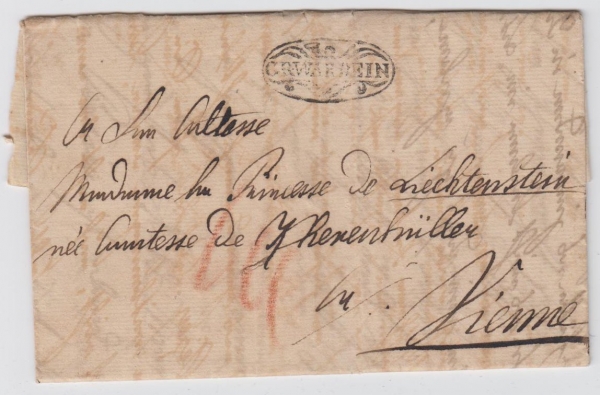 GRWARDEIN
A Son Altesse
Madame la Princesse de Liechtenstein
née Comtesse de Khevenhüller
a/.
Vienne